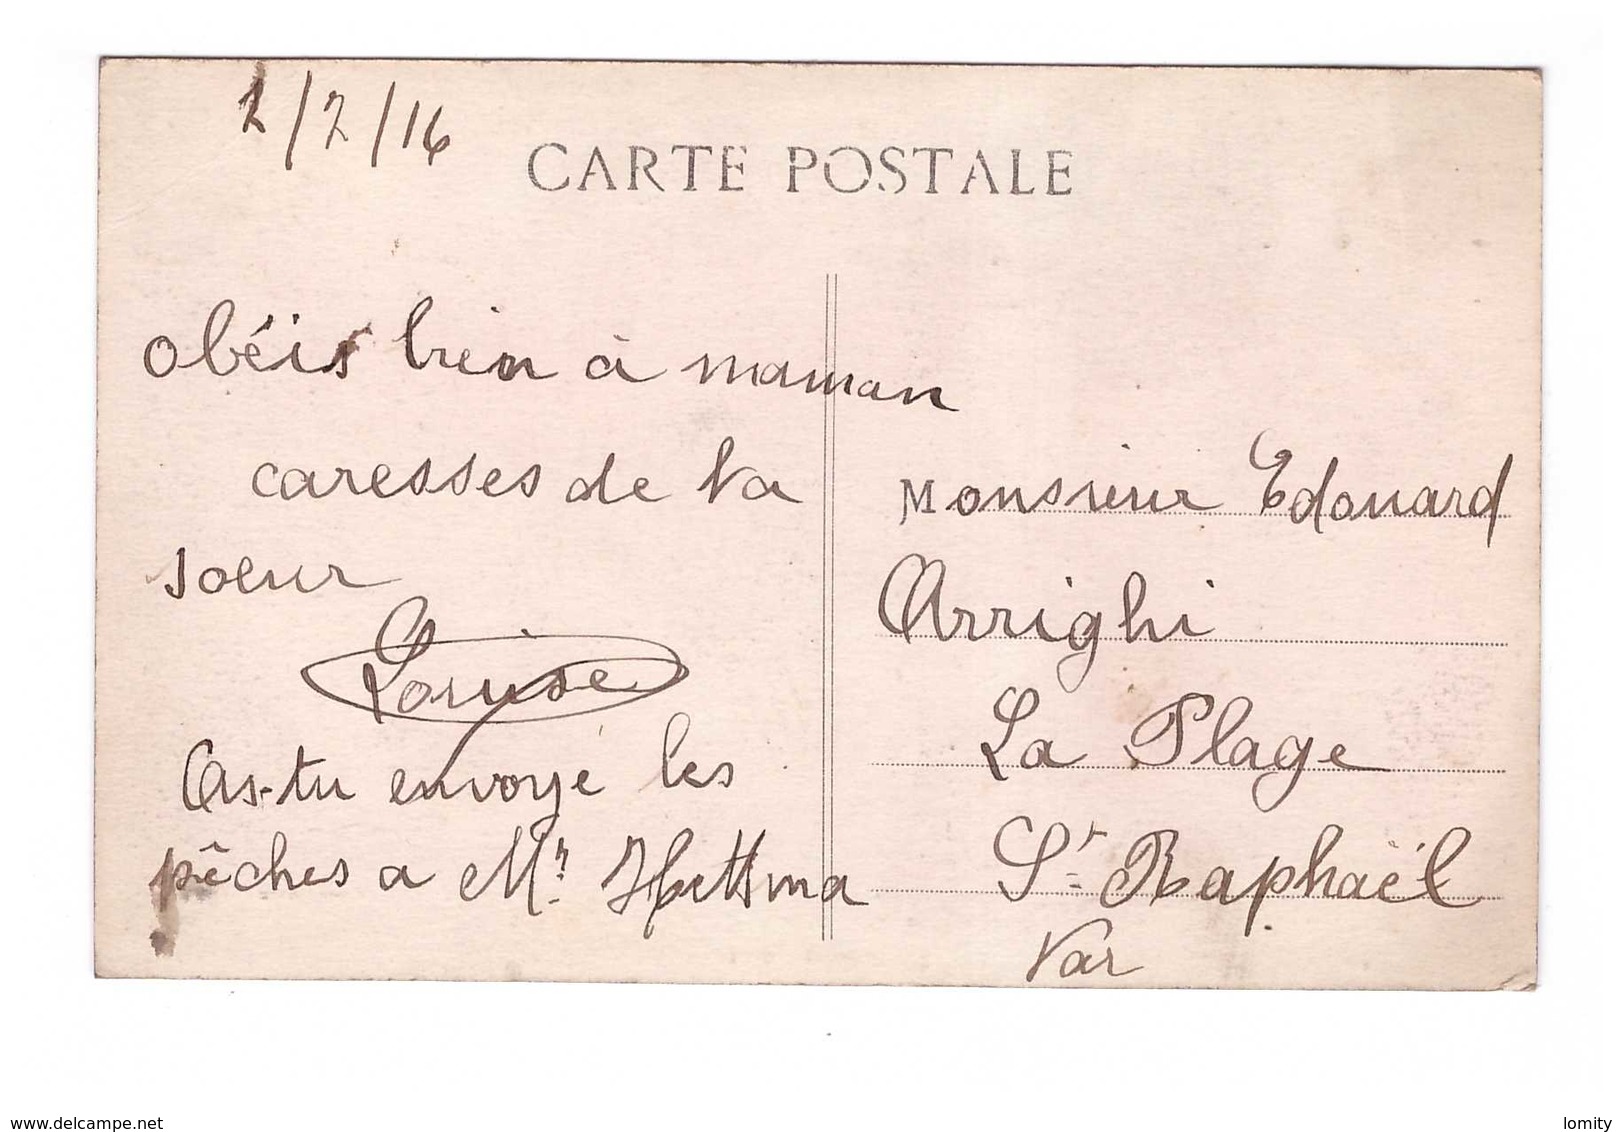 2/7/16
CARTE POSTALE
obéis bien à maman
caresses de ta
soeur
Louise
As-tu envoyé les
pêches a Mr.
Monsieur Edouard
Arrighi
La Plage
St Raphaël
Var
www.delcampe.net
lomity